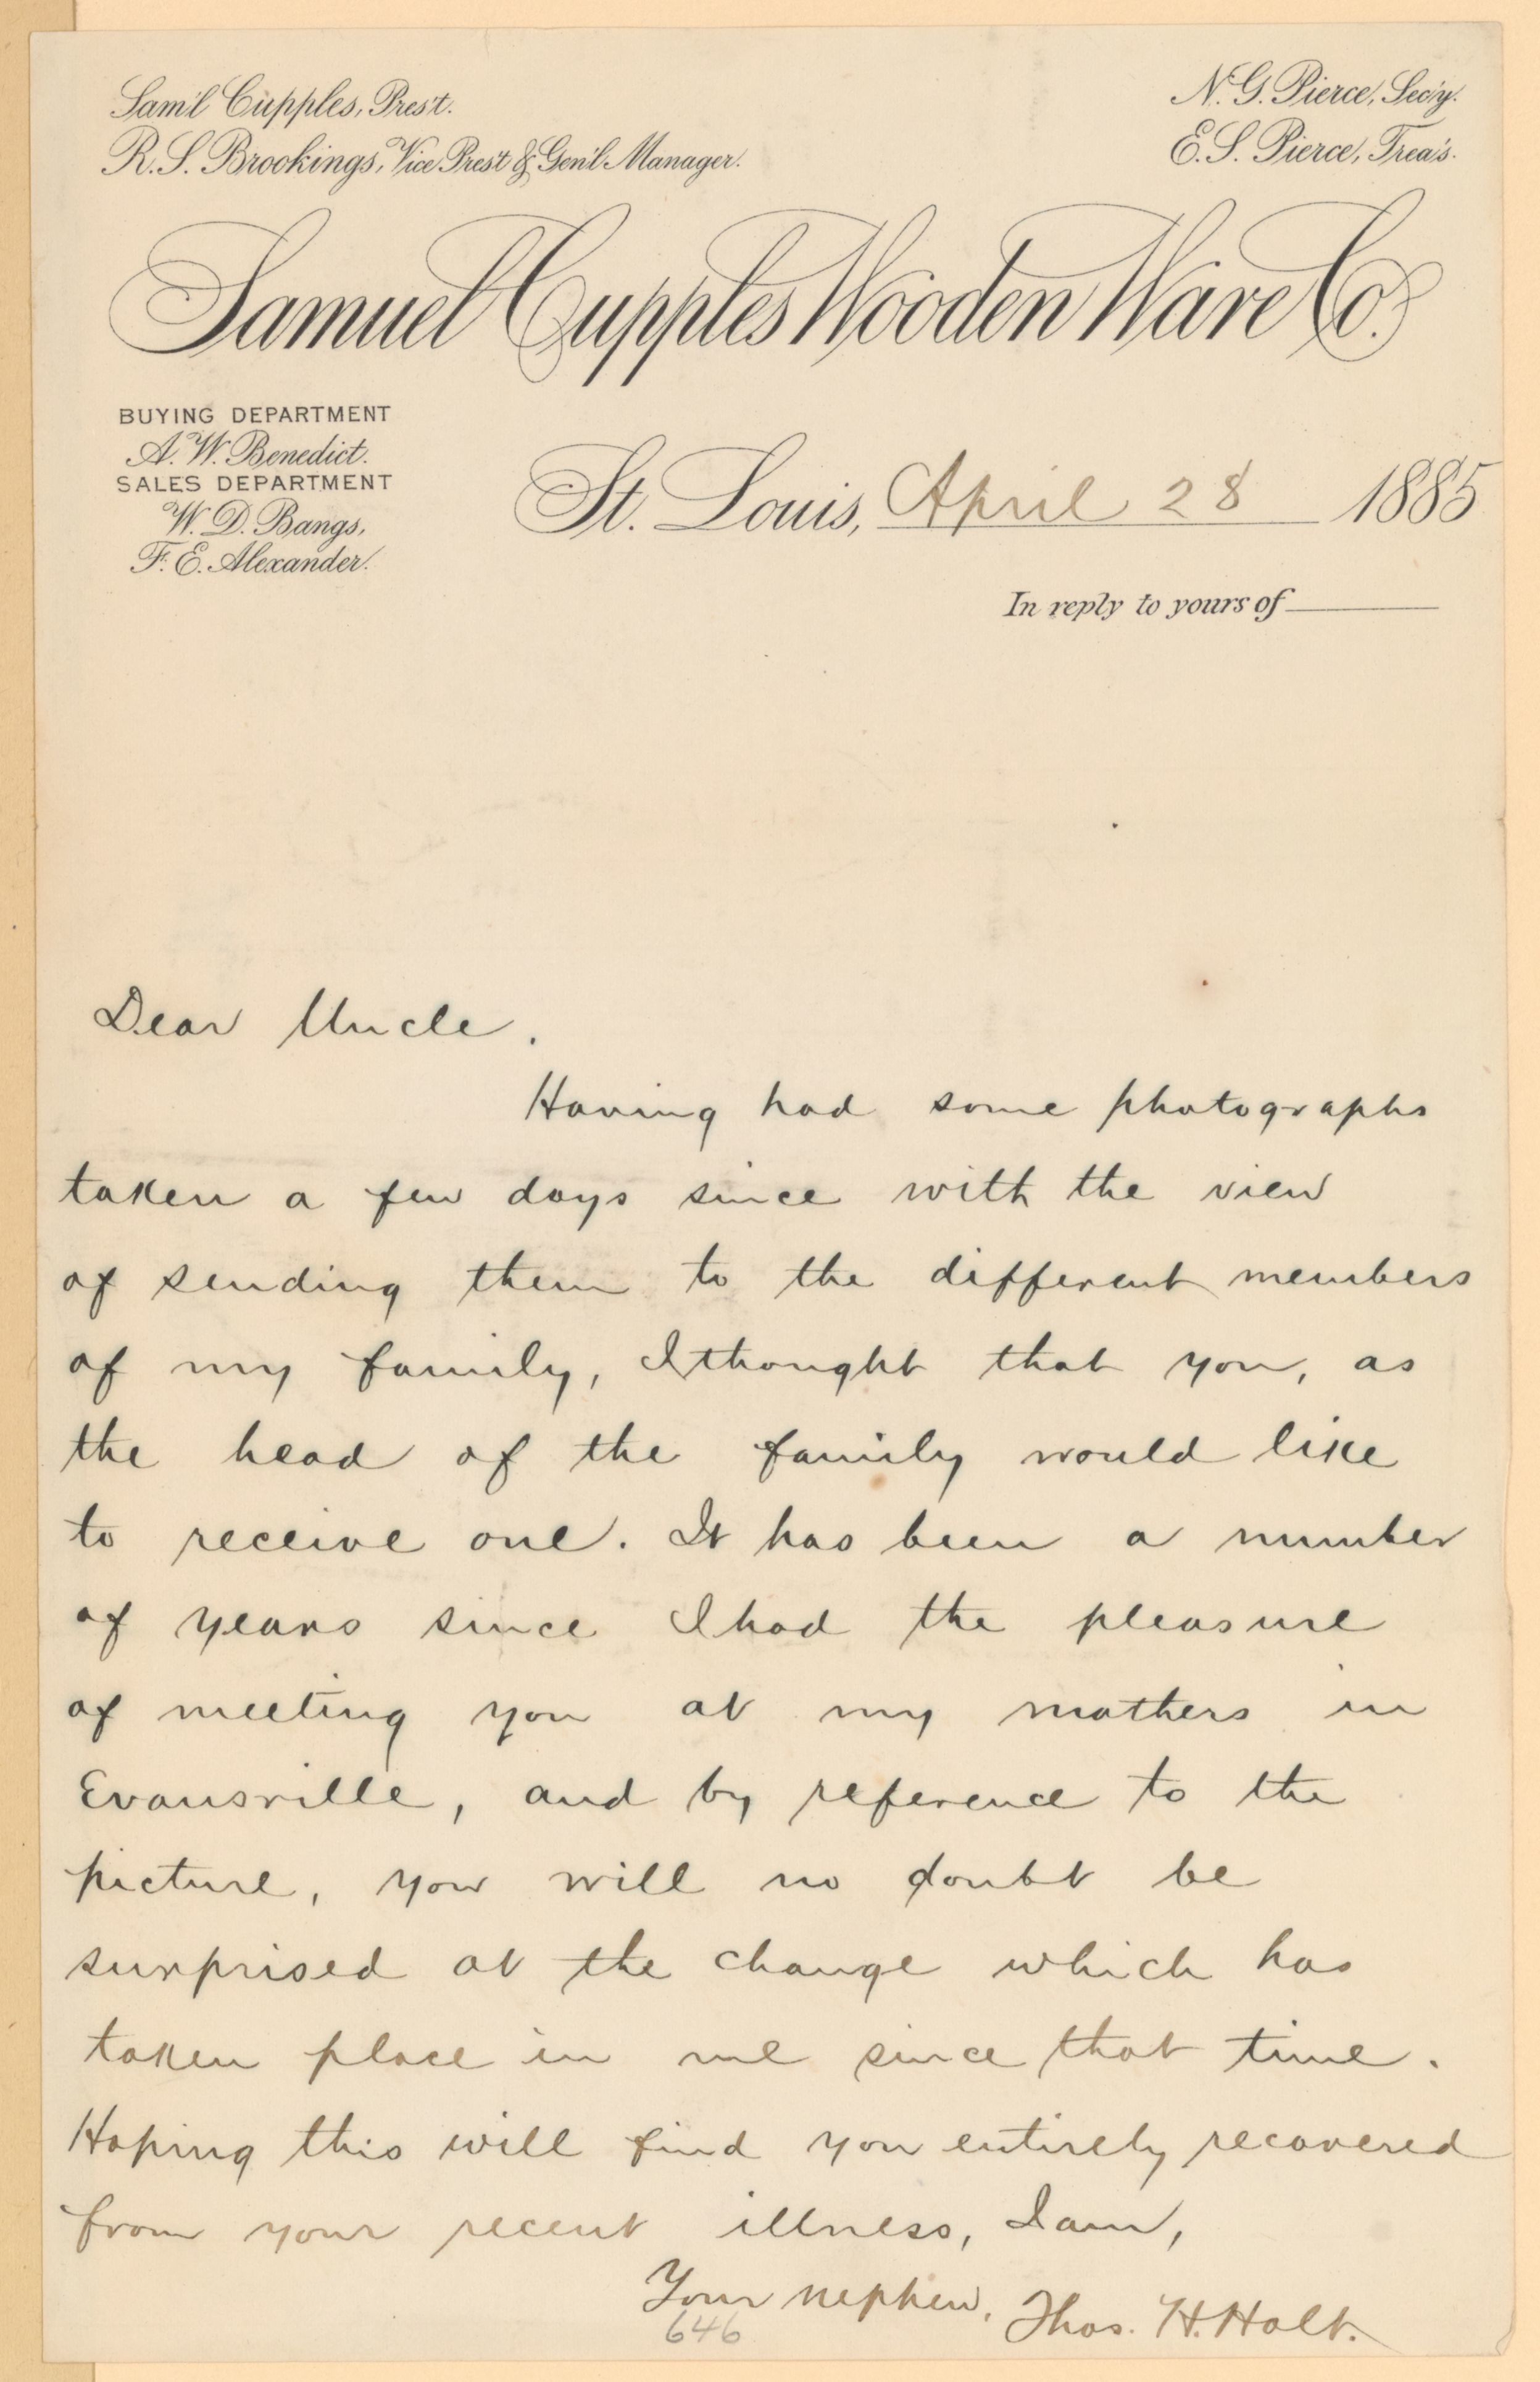 Sam'l Cupples, Pres't.
R. S. Brookings, Vice Pres't & Gen'l Manager.
N. G. Pierce, Sec'y.
E. S. Pierce, Treas.
Samuel Cupples Wooden Ware Co.
BUYING DEPARTMENT
A. W. Benedict.
SALES DEPARTMENT
W. D. Bangs,
F. E. Alexander.
St. Louis, April 28 1885
In reply to yours of
Dear Uncle.
Having had some photographs
taken a few days since with the view
of sending them to the different members
of my family, I thought that you, as
the head of the family would like
to receive one. It has been a number
of years since I had the pleasure
of meeting you at my mothers in
Evansville, and by reference to the
picture, you will no doubt be
surprised at the change which has
taken place in me since that time.
Hoping this will find you entirely recovered
from your recent illness, I am,
Your nephew, Thos. H. Holt.
646